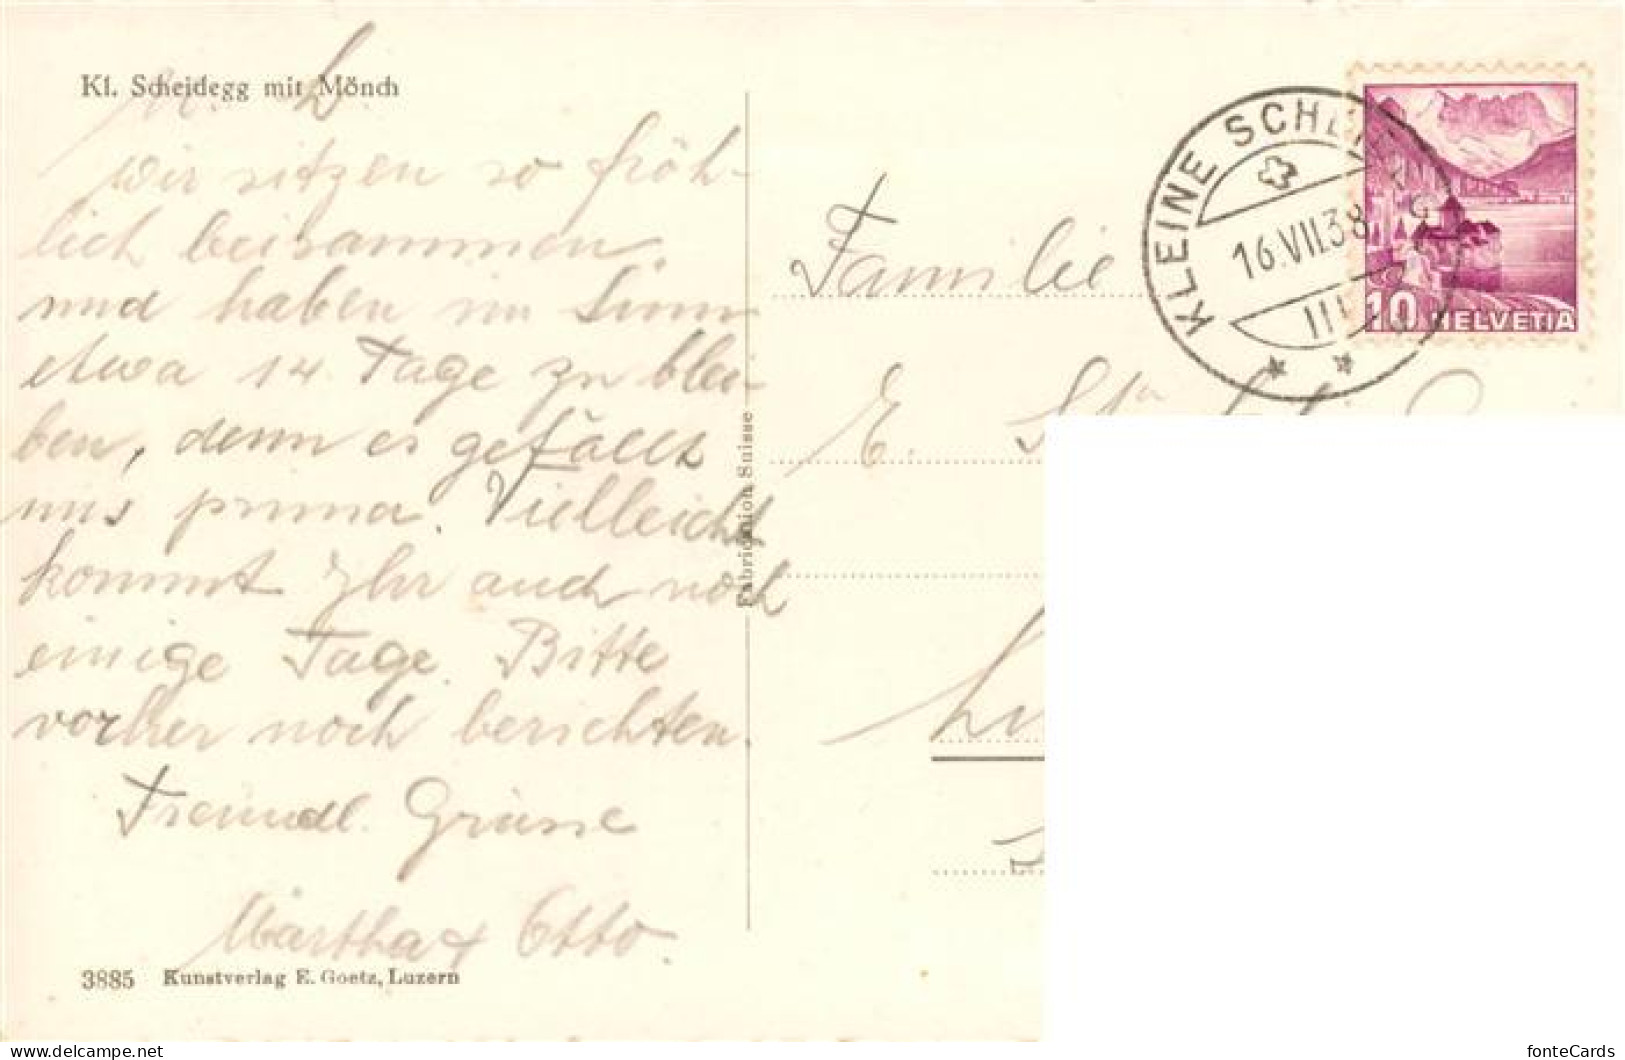 Kl. Scheidegg mit Mönch
M. L.
wir sitzen so fröh-
lich beisammen,
und haben im Sinn
etwa 14 Tage zu blei-
ben, denn es gefällt
uns prima. Vielleicht
kommt Ihr auch noch
einige Tage. Bitte
vorher noch berichten.
Freundl. Grüsse
Martha + Otto.
3885 Kunstverlag E. Goetz, Luzern
Fabrication Suisse
Familie
E.
KLEINE
16.VII.38
10 HELVETIA
fonteCards